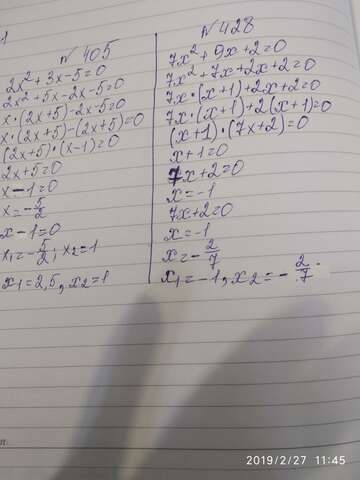 1
№ 405
2x² + 3x - 5 = 0
2x² + 5x - 2x - 5 = 0
x · (2x + 5) - 2x - 5 = 0
x · (2x + 5) - (2x + 5) = 0
(2x + 5) · (x - 1) = 0
2x + 5 = 0
x - 1 = 0
x = - 5/2
x - 1 = 0
x₁ = - 5/2 ; x₂ = 1
x₁ = 2,5, x₂ = 1
№ 428
7x² + 9x + 2 = 0
7x² + 7x + 2x + 2 = 0
7x · (x + 1) + 2x + 2 = 0
7x · (x + 1) + 2(x + 1) = 0
(x + 1) · (7x + 2) = 0
x + 1 = 0
7x + 2 = 0
x = -1
7x + 2 = 0
x = -1
x = - 2/7
x₁ = -1, x₂ = - 2/7.
2019/2/27 11:45